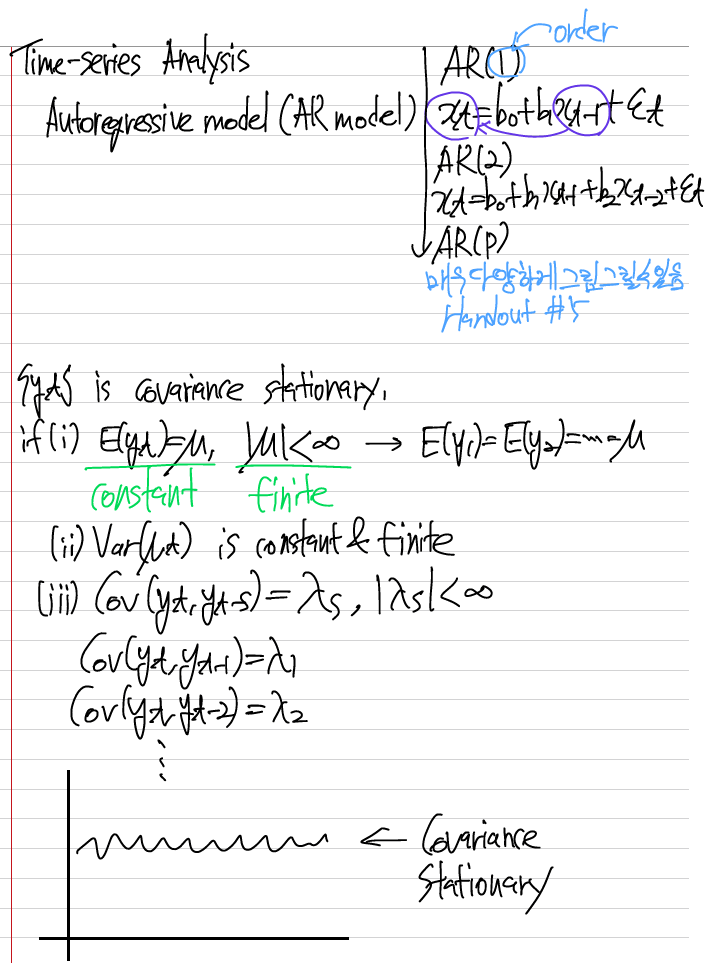 Time-series Analysis
Autoregressive model (AR model)
order
AR(1)
xt=b0+b1xt-1+εt
AR(2)
xt=b0+b1xt-1+b2xt-2+εt
AR(p)
매우 다양하게 그림 그릴 수 있음
Handout #5
{yt} is covariance stationary,
if (i) E(yt)=μ, |μ|<∞ → E(y1)=E(y2)=…=μ
constant finite
(ii) Var(μt) is constant & finite
(iii) Cov(yt, yt-s)=λs, |λs|<∞
Cov(yt, yt-1)=λ1
Cov(yt, yt-2)=λ2
⋮
← Covariance
Stationary